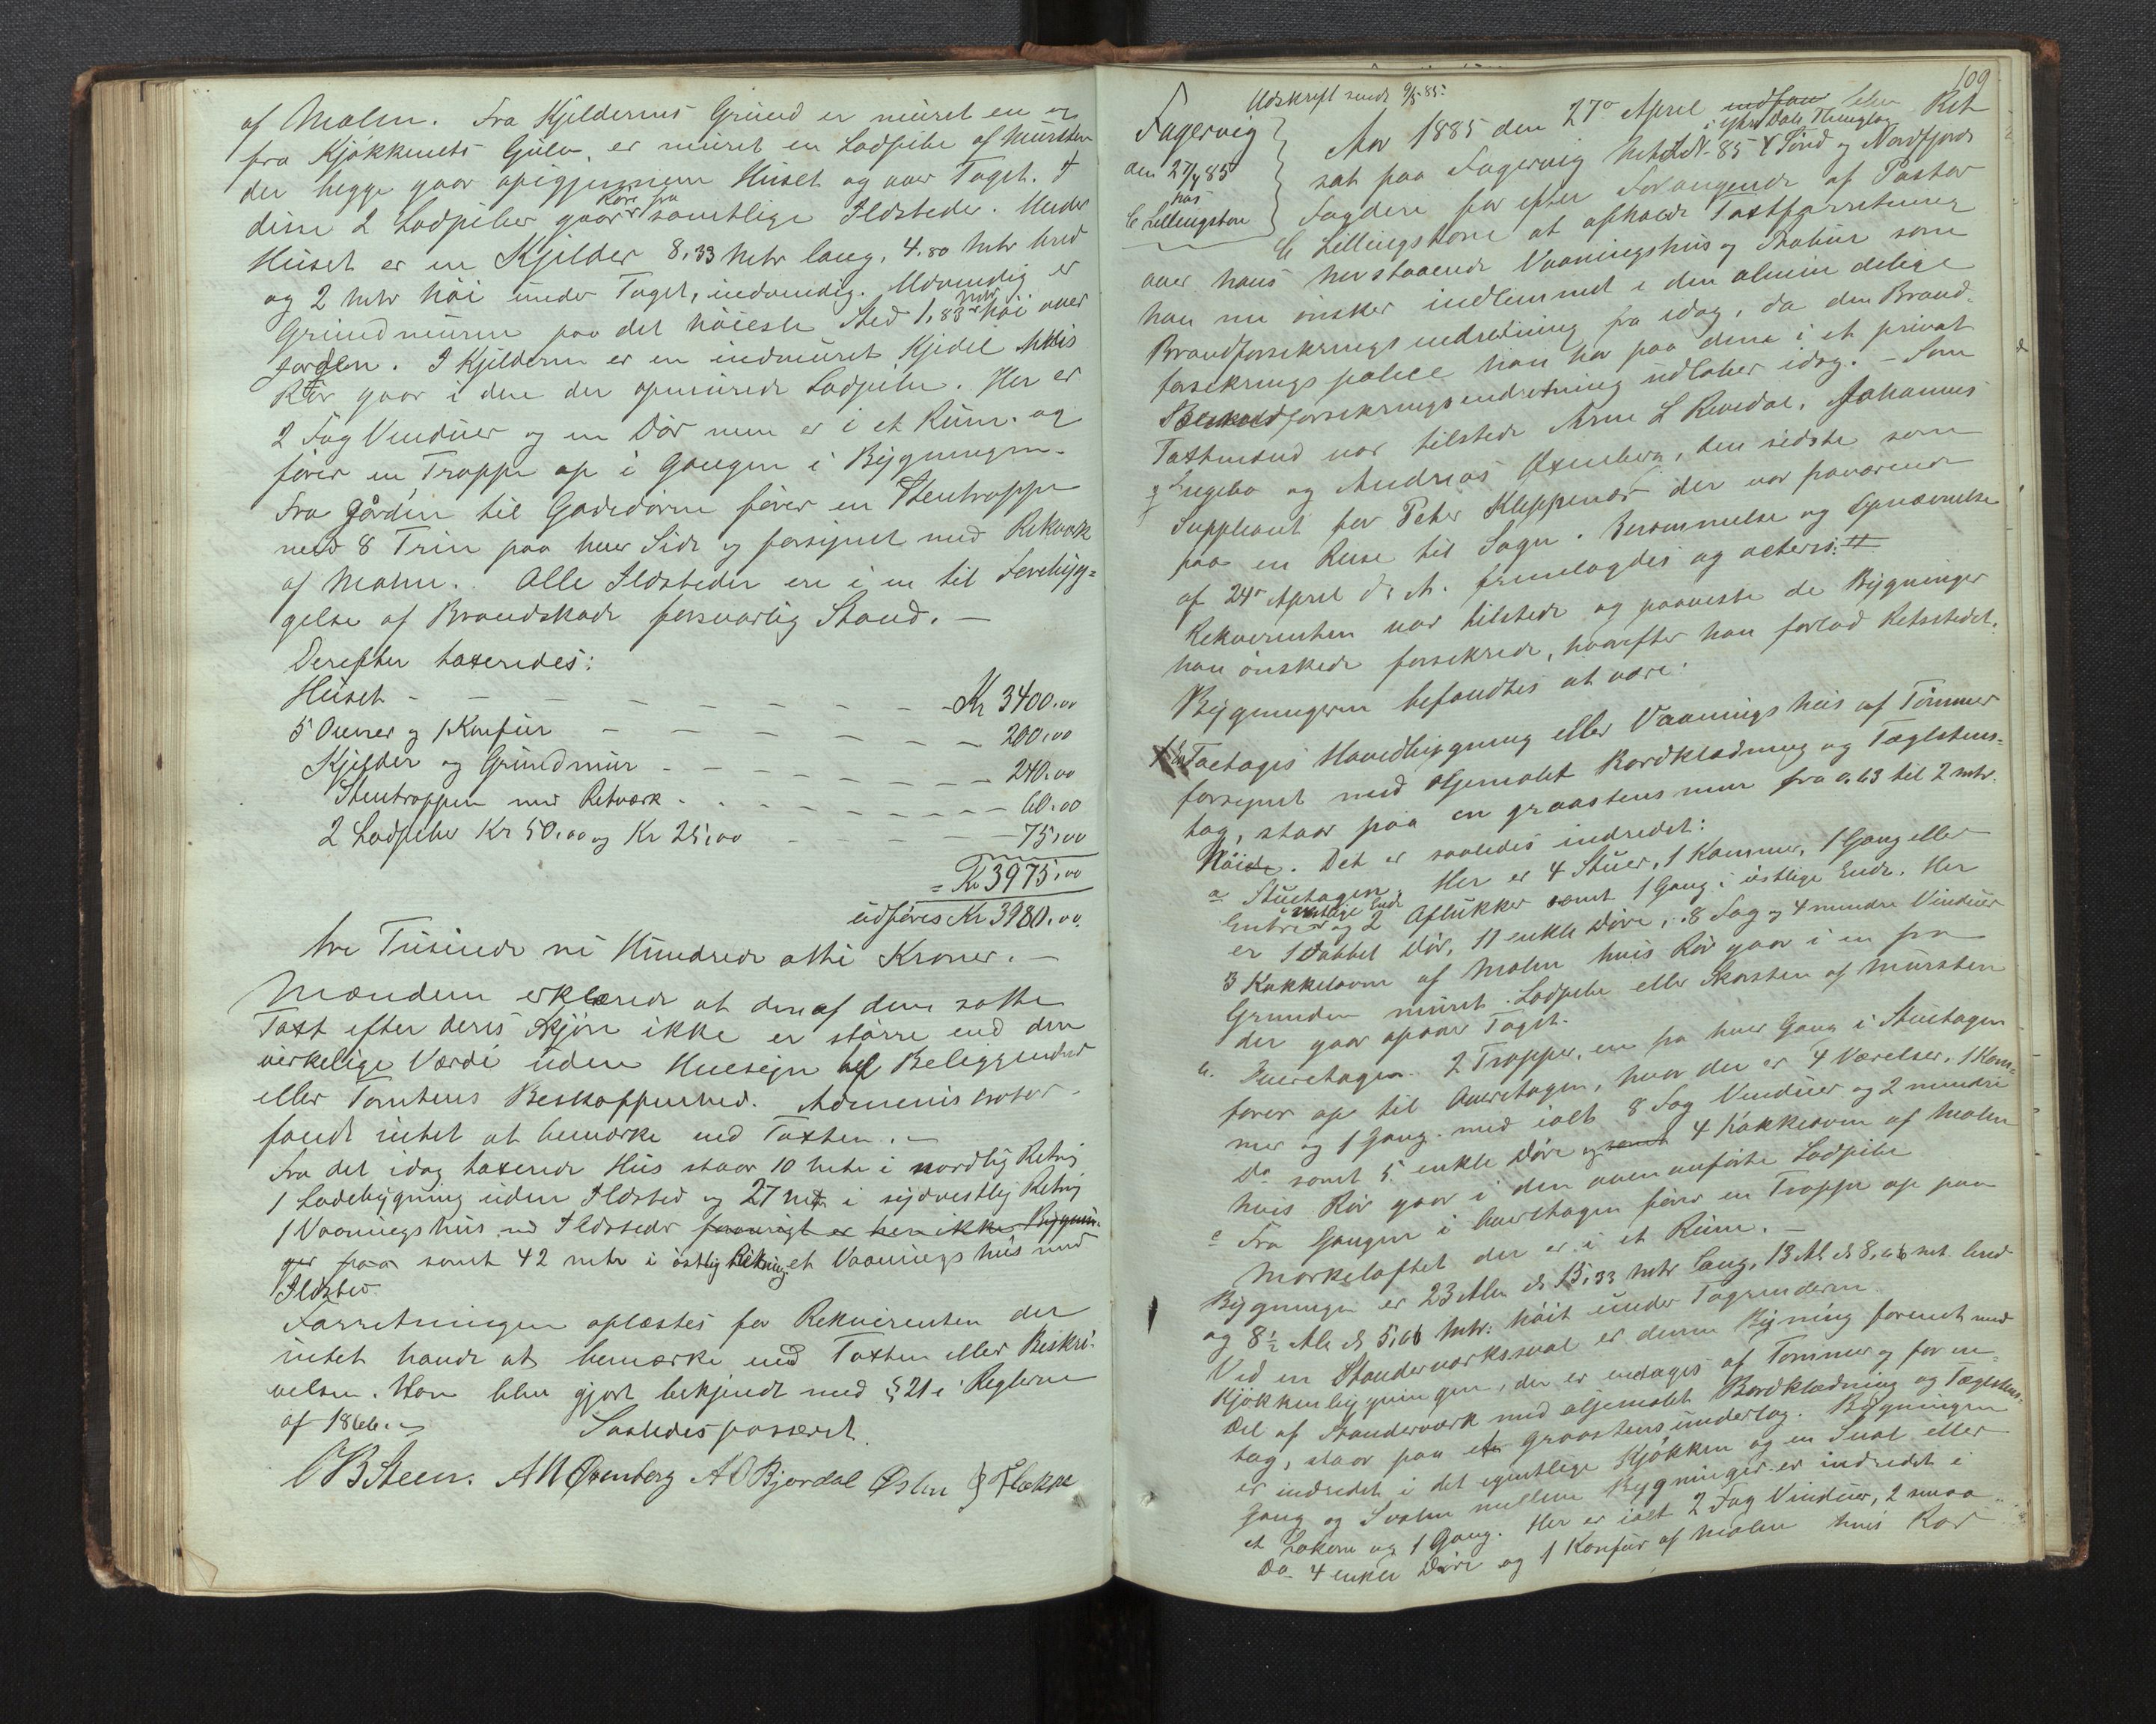 af Malm. Fra Kjelderens Grund er muret en og
fra Kjøkkenets Gulv er muret en Ladpibe af Mursten
der begge gaar opigjennem Huset og over Taget. I
disse 2 Ladpiber gaar Rør fra samtlige Ildsteder. Under
Huset er en Kjelder 8,33 Mtr lang, 4.80 Mtr bred
og 2 Mtr høi under Taget, indvendig. Udvendig er
Grundmuren paa det høieste Sted 1,83 Mtr høi over
Jorden. I Kjelderen er en indmuret Kjedel hvis
Rør gaar i den der opmurede Ladpibe. Her er
2 Fag Vinduer og en Dør men er i et Rum og
fører en Trappe op i Gangen i Bygningen.
Fra Gården til Gadedøren fører en Stentrappe
med 8 Trin paa hver Side og forsynet med Rekværk
af Malm. Alle Ildsteder ere i en til Forebyg=
gelse af Brandskade forsvarlig Stand. —
Derefter taxeredes:
Huset - - - - - - - - Kr 3400.00
5 Ovner og 1 Komfur - - - - - - 200.00
Kjelder og Grundmur - - - - - - 240.00
Stentrappen med Rekværk - - - - - 60.00
2 Ladpiber Kr 50.00 og Kr 25,00 - - - - 75,00
= Kr 3975,00
udføres Kr 3980.00.
tre Tusinde ni Hundrede otti Kroner. —
Mændene erklærede at den af dem satte
Taxt efter deres Skjøn ikke er større end den
virkelige Værdi uden Hensyn til Beliggenhed
eller Tomtens Beskaffenhed. Administrator
fandt intet at bemærke ved Taxten. —
Fra det idag taxerede Hus staar 10 Mtr i nordlig Retng
1 Ladebygning uden Ildsted og 27 Mtr i sydvestlig Retng
1 Vaaningshus med Ildsteder forøvrigt er her ikke Bygnin-
ger paa samt 42 mtr i østlig Retning et Vaaningshus med
Ildsted.
Forretningen oplæstes for Rekvirenten der
intet havde at bemærke ved Taxten eller Beskri-
velsen. Han blev gjort bekjendt med § 21 i Reglerne
af 1866.
Saaledes passeret.
OBSteen. AN Øxenberg AO Bjordal Østen J Flekke
109
Udskrift sendt 9/5 85.
Fagervig
den 27/4 85
hos
C Lillingston
Aar 1885 den 27de April indfan blev Ret
i Ytre Dals Thinglag
sat paa Fagervig Mat. LNr 85 i Sønd og Nordfjords
Fogderi for efter Forlangende af Pastor
C Lillingstone at afholde Taxtforretning
over hans herstaaende Vaaningshus og Stabur som
han nu ønsker indlemmet i den almindelige
Brandforsikringsindretning fra idag, da den Brand-
forsikringspolice han har paa dem i et privat
Brandforsikringsindretning udløber idag. — Som
Taxtmænd var tilstede Arne L Rivedal, Johannes
J Engebø og Andreas Øxenberg, den sidste som
Suppleant for Peter Kleppenæs der var fraværende
paa en Reise til Sogn. Berammelse og Opnævnelse
af 24de April d. A. fremlagdes og acteres.
Rekvirenten var tilstede og paaviste de Bygninger
han ønskede forsikrede, hvorefter han forlod Retsstedet.
Bygningerne befandtes at være:
1. En Toetages Hovedbygning eller Vaaningshus af Tømmer
forsynet med oljemalet Bordklædning og Taglstens-
tag, staar paa en graastens mur fra 0.63 til 2 mtr.
Høide. Det er saaledes indredet:
a Stuetagen. Her er 4 Stuer, 1 Kammer, 1 Gang eller
Entre i vestlige Ende og 2 Aflukker samt 1 Gang i østlige Ende. Her
er 1 Dobbel Dør, 11 enkle Døre, 8 Fag og 4 mindre Vinduer
3 Kakkelovne af Malm hvis Rør gaar i en fra
Grunden muret Ladpibe eller Skorsten af Mursten
der gaar op over Taget.
b. Overetagen. 2 Trapper, en fra hver Gang i Stuetagen
fører op til Overetagen, hvor der er 4 Værelser, 1 Kam-
mer og 1 Gang med ialt 8 Fag Vinduer og 2 mindre
Do samt 5 enkle Døre og samt 4 Kakkelovne af Malm
hvis Rør gaar i den ovenanførte Ladpibe
c Fra Gangen i Overetagen fører en Trappe op paa
Mørkeloftet der er i et Rum. —
Bygningen er 23 Alen el. 15,33 Mtr lang, 13 Al. el. 8,66 mt. bred
og 8½ Al. el. 5,66 Mtr. høit under Tagrenderne.
Ved en Standerværkssval er denne Bygning forenet med
Kjøkkenbygningen, der er enetages af Tømmer og for en
Del af Standerværk med oljemalet Bordklædning og Taglstens-
tag, staar paa et graastensunderlag. Bygningen
er indredet i det egentlige Kjøkken og en Sval eller
Gang og Svalen mellem Bygninger er indredet i
et Lokum og 1 Gang. Her er ialt 2 Fag Vinduer, 2 smaa
Do. 4 enkle Døre og 1 Komfur af Malm hvis Rør